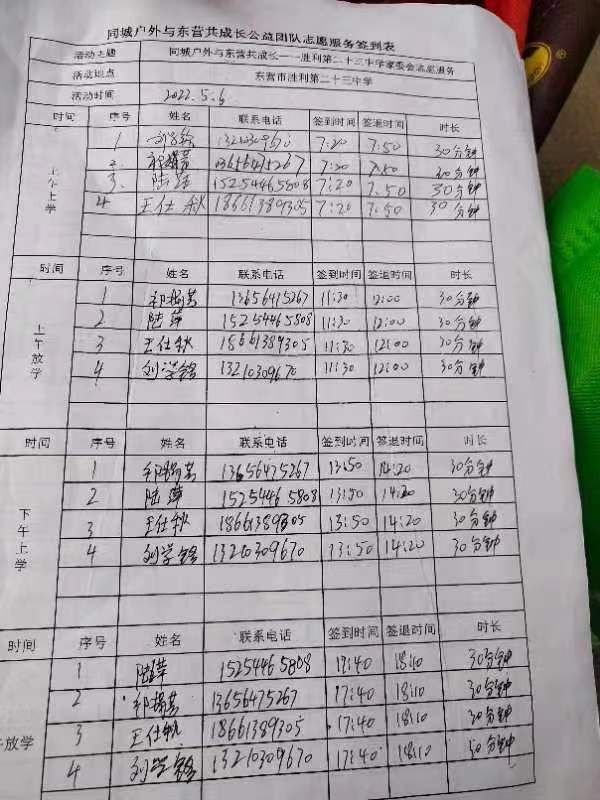 同城户外与东营共成长公益团队志愿服务签到表
活动主题 同城户外与东营共成长——胜利第二十三中学家委会志愿服务
活动地点 东营市胜利第二十三中学
活动时间 2022.5.6
时间 序号 姓名 联系电话 签到时间 签退时间 时长
上午上学
1 刘学铭 7:20 7:50 30分钟
2 祁瑞芸 13656475267 7:20 7:50 30分钟
3 陆萍 15254465808 7:20 7:50 30分钟
4 王仕秋 18661389305 7:20 7:50 30分钟
时间 序号 姓名 联系电话 签到时间 签退时间 时长
上午放学
1 祁瑞芸 13656475267 11:30 12:00 30分钟
2 陆萍 15254465808 11:30 12:00 30分钟
3 王仕秋 18661389305 11:30 12:00 30分钟
4 刘学铭 13210309670 11:30 12:00 30分钟
时间 序号 姓名 联系电话 签到时间 签退时间 时长
下午上学
1 祁瑞芸 13656475267 13:50 14:20 30分钟
2 陆萍 15254465808 13:50 14:20 30分钟
3 王仕秋 18661389305 13:50 14:20 30分钟
4 刘学铭 13210309670 13:50 14:20 30分钟
时间 序号 姓名 联系电话 签到时间 签退时间 时长
放学
1 陆萍 15254465808 17:40 18:10 30分钟
2 祁瑞芸 13656475267 17:40 18:10 30分钟
3 王仕秋 18661389305 17:40 18:10 30分钟
4 刘学铭 13210309670 17:40 18:10 30分钟